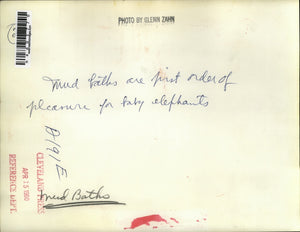 PHOTO BY GLENN ZAHN
Mud baths are first order of
pleasure for baby elephants
CLEVELAND PRESS
APR 15 1960
REFERENCE DEPT.
Mud Baths